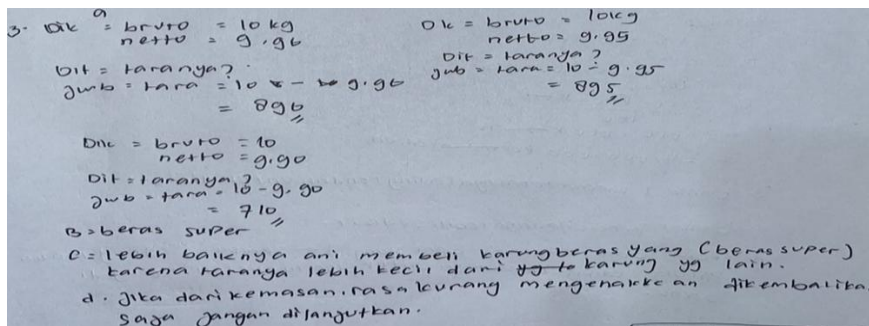 3. Dik a = bruto = 10 kg
netto = 9.96
Dit = taranya?
Jwb = tara = 10 - 9.96
= 896
Dik = bruto = 10kg
netto = 9.95
Dit = taranya?
Jwb = tara = 10 - 9.95
= 895
Dik = bruto = 10
netto = 9.90
Dit = taranya?
Jwb = tara = 10 - 9.90
= 710
B = beras super
C = lebih baiknya ani membeli karung beras yang (beras super)
karena taranya lebih kecil dari karung yg lain.
d. Jika dari kemasan, rasa kurang mengenakkean dikembalika
saja jangan dilanjutkan.